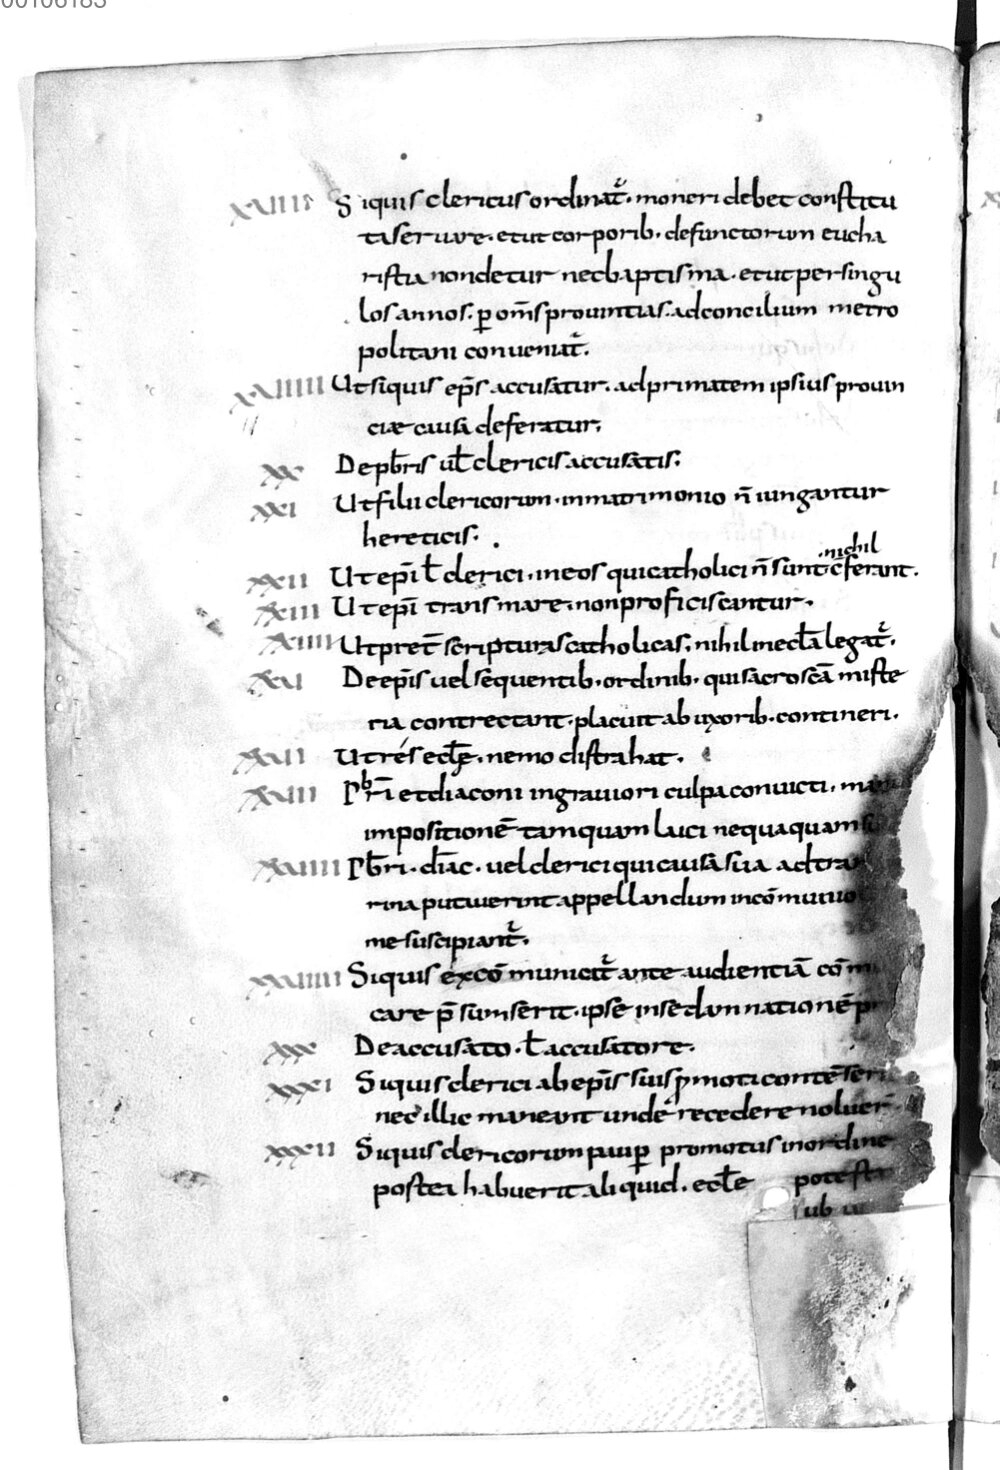 XVIIII Siquis clericus ordinat̄. moneri debet constitu
ta seruare. et ut corporib. defunctorum eucha
ristia non detur nec baptisma. et ut per singu
los annos. ꝑ om̄s prouintias. ad concilium metro
politani conueniat̄.
XVIIIII Ut siquis ep̄s accusatur. ad primatem ipsius prouin
ciæ causa deferatur.
XX De pb̄ris ul̄ clericis accusatis.
XXI Ut filii clericorum. in matrimonio n̄ iungantur
hereticis.
nichil
XXII Ut epī ł clerici. in eos qui catholici n̄ sunt cferant.
XXIII Ut epī trans mare. non proficiscantur.
XXIIII Ut pret̄ scripturas catholicas. nihil in ecl̄a legat̄.
XXV De ep̄is uel sequentib. ordinib. qui sacrosc̄a miste
ria contrectant. placuit ab uxorib. contineri.
XXVI Ut res ecl̄ę. nemo distrahat.
XXVII Pb̄ri et diaconi in grauiori culpa conuicti.
impositionē tamquam laici nequaquam
XXVIII Pb̄ri. diāc. uel clerici qui causa sua ad
rina putuerint appellandum in cōmunio
ne suscipiant̄.
XXVIIII Siquis excōmunicat̄ ante audientiā cōm
care p̄sumserit. ipse in se damnationē
XXX De accusato. ł accusatore.
XXXI Siqui clerici ab ep̄is suis ꝓmoti contēseri
nec illic maneant unde recedere noluer̄
XXXII Siquis clericorum pauꝑ promotus in ordine
postea habuerit aliquid. ecl̄e potesta
sub